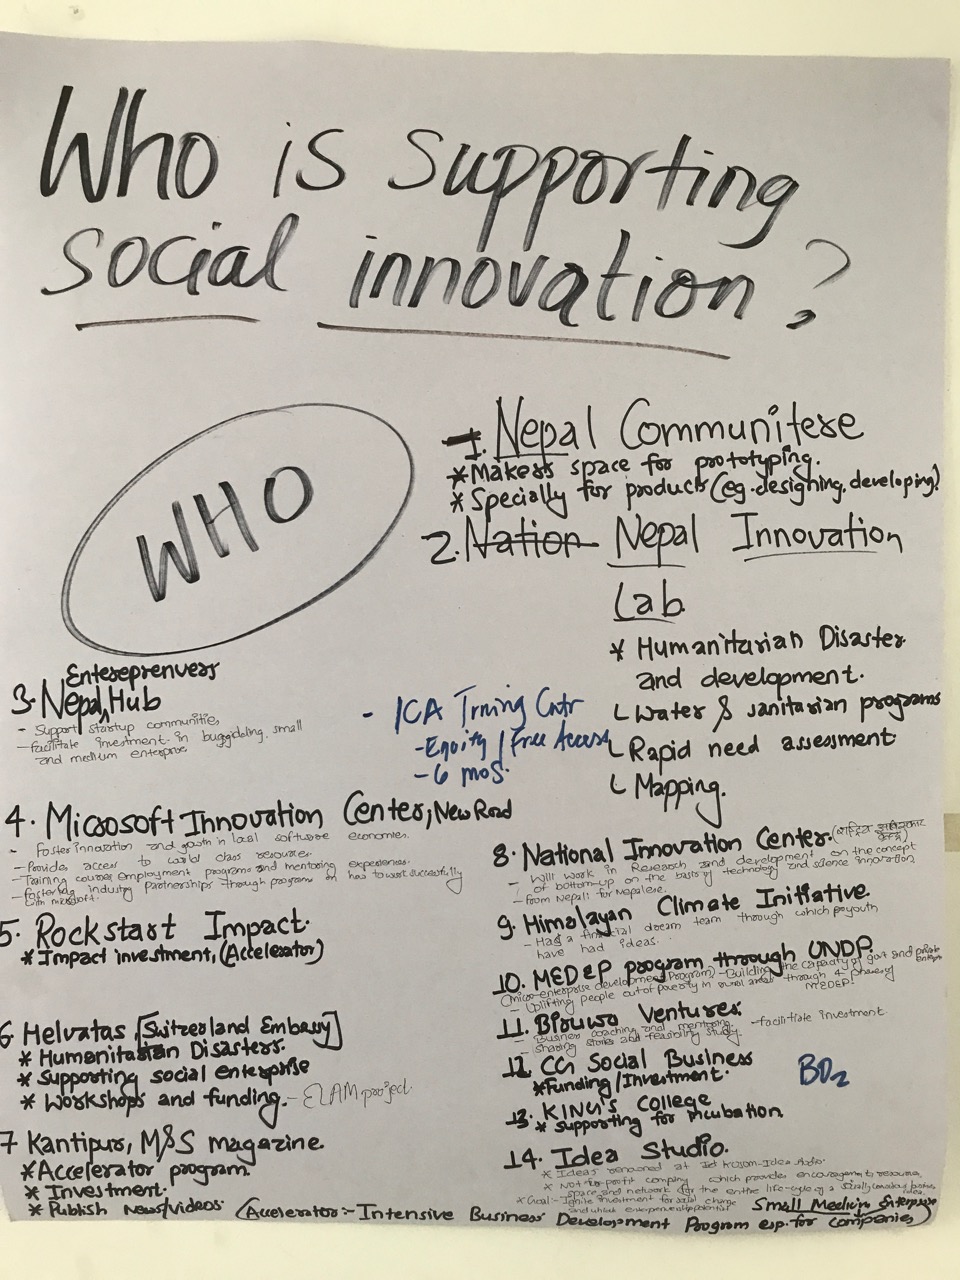 Who is supporting
social innovation?
WHO
1. Nepal Communitere
* Makers space for prototyping.
* Specially for products (eg. designing, developing)
2. Nation Nepal Innovation
Lab
* Humanitarian Disaster
and development.
Water & sanitarian programs
Rapid need assessment
Mapping.
Entereprenvers
3. Nepal Hub
- Support startup communities
- facilitate investment in small
and medium enterprise
- ICA Trning Cntr
- Equity / Free Access
- 6 mos.
4. Microsoft Innovation Center, New Road
- Foster innovation and growth in local software economies.
- Provides access to world class resources
- Training courses, employment programs and mentoring experiences.
- Fostering industry partnerships through programs on how to work successfully
with microsoft.
5. Rockstart Impact.
* Impact investment, (Accelerator)
6 Helvatas [Switzerland Embassy]
* Humanitarian Disasters.
* Supporting social enterprise
* Workshops and funding. - ELAM project.
7 Kantipur, M&S magazine
* Accelerator program.
* Investment.
* Publish News/videos
8. National Innovation Center.
- Will work in Research and development on the concept
of bottom-up on the basis of technology and science innovation
- From Nepali for Nepalese.
9. Himalayan Climate Initiative
- Has a financial dream team through which youth
have had ideas.
10. MEDEP program through UNDP.
(micro-enterprise development Program) - Building the capacity of govt and private
- Uplifting people out of poverty in rural areas through
MEDEP!
11. Biruwa Ventures
- Business coaching and mentoring - facilitiate investment
- Sharing stories and feasibility study.
12 CG Social Business
* Funding / Investment.
BO2
13. KING's College
* Supporting for incubation
14. Idea Studio.
* Ideas
* Not for profit company which provides encouragement, resource,
space and network for the entire life-cycle of a
* Goal:- Ignite investment for social change
Small Medium Enterprise
(Accelerator:- Intensive Business Development Program esp. for companies)